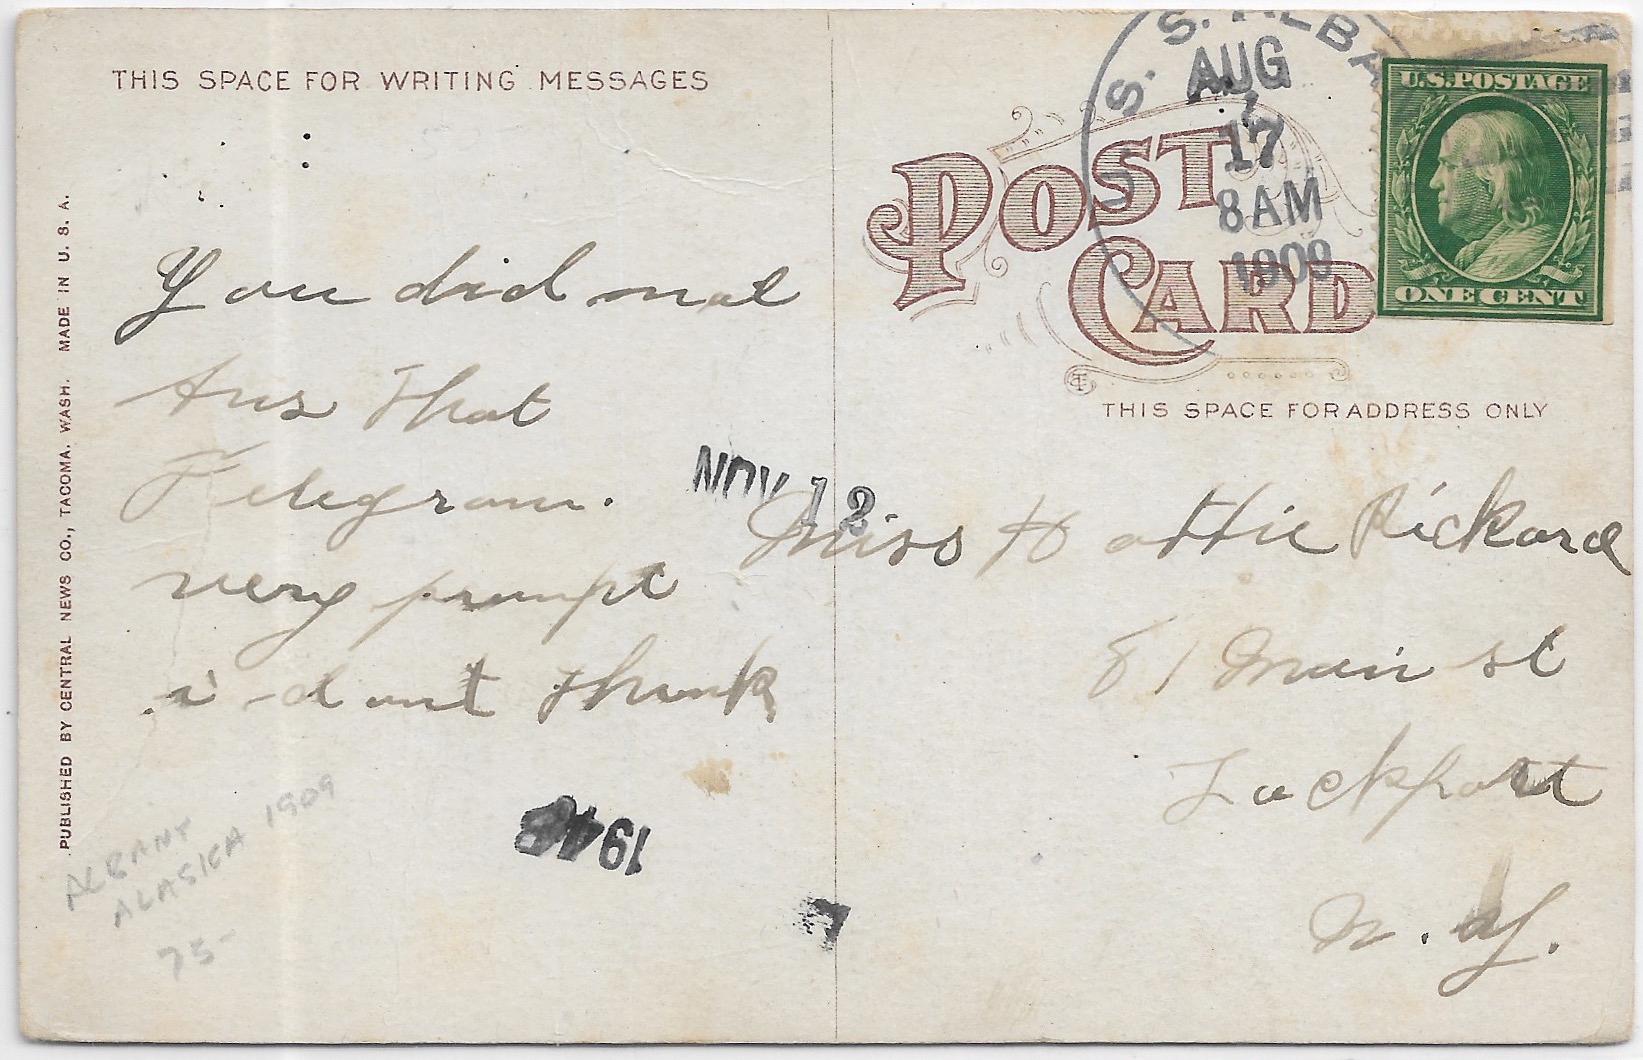 THIS SPACE FOR WRITING MESSAGES
U. S. S. ALBA
AUG
17
8 AM
1909
U.S. POSTAGE
ONE CENT
POST
CARD
THIS SPACE FOR ADDRESS ONLY
You did not
Ans That
Telegram.
very prompt
i dont think
NOV 12
Miss Hattie Rickard
81 Main st
Lockport
N. Y.
194
PUBLISHED BY CENTRAL NEWS CO., TACOMA, WASH. MADE IN U. S. A.
ALBANY
ALASKA 1909
75-